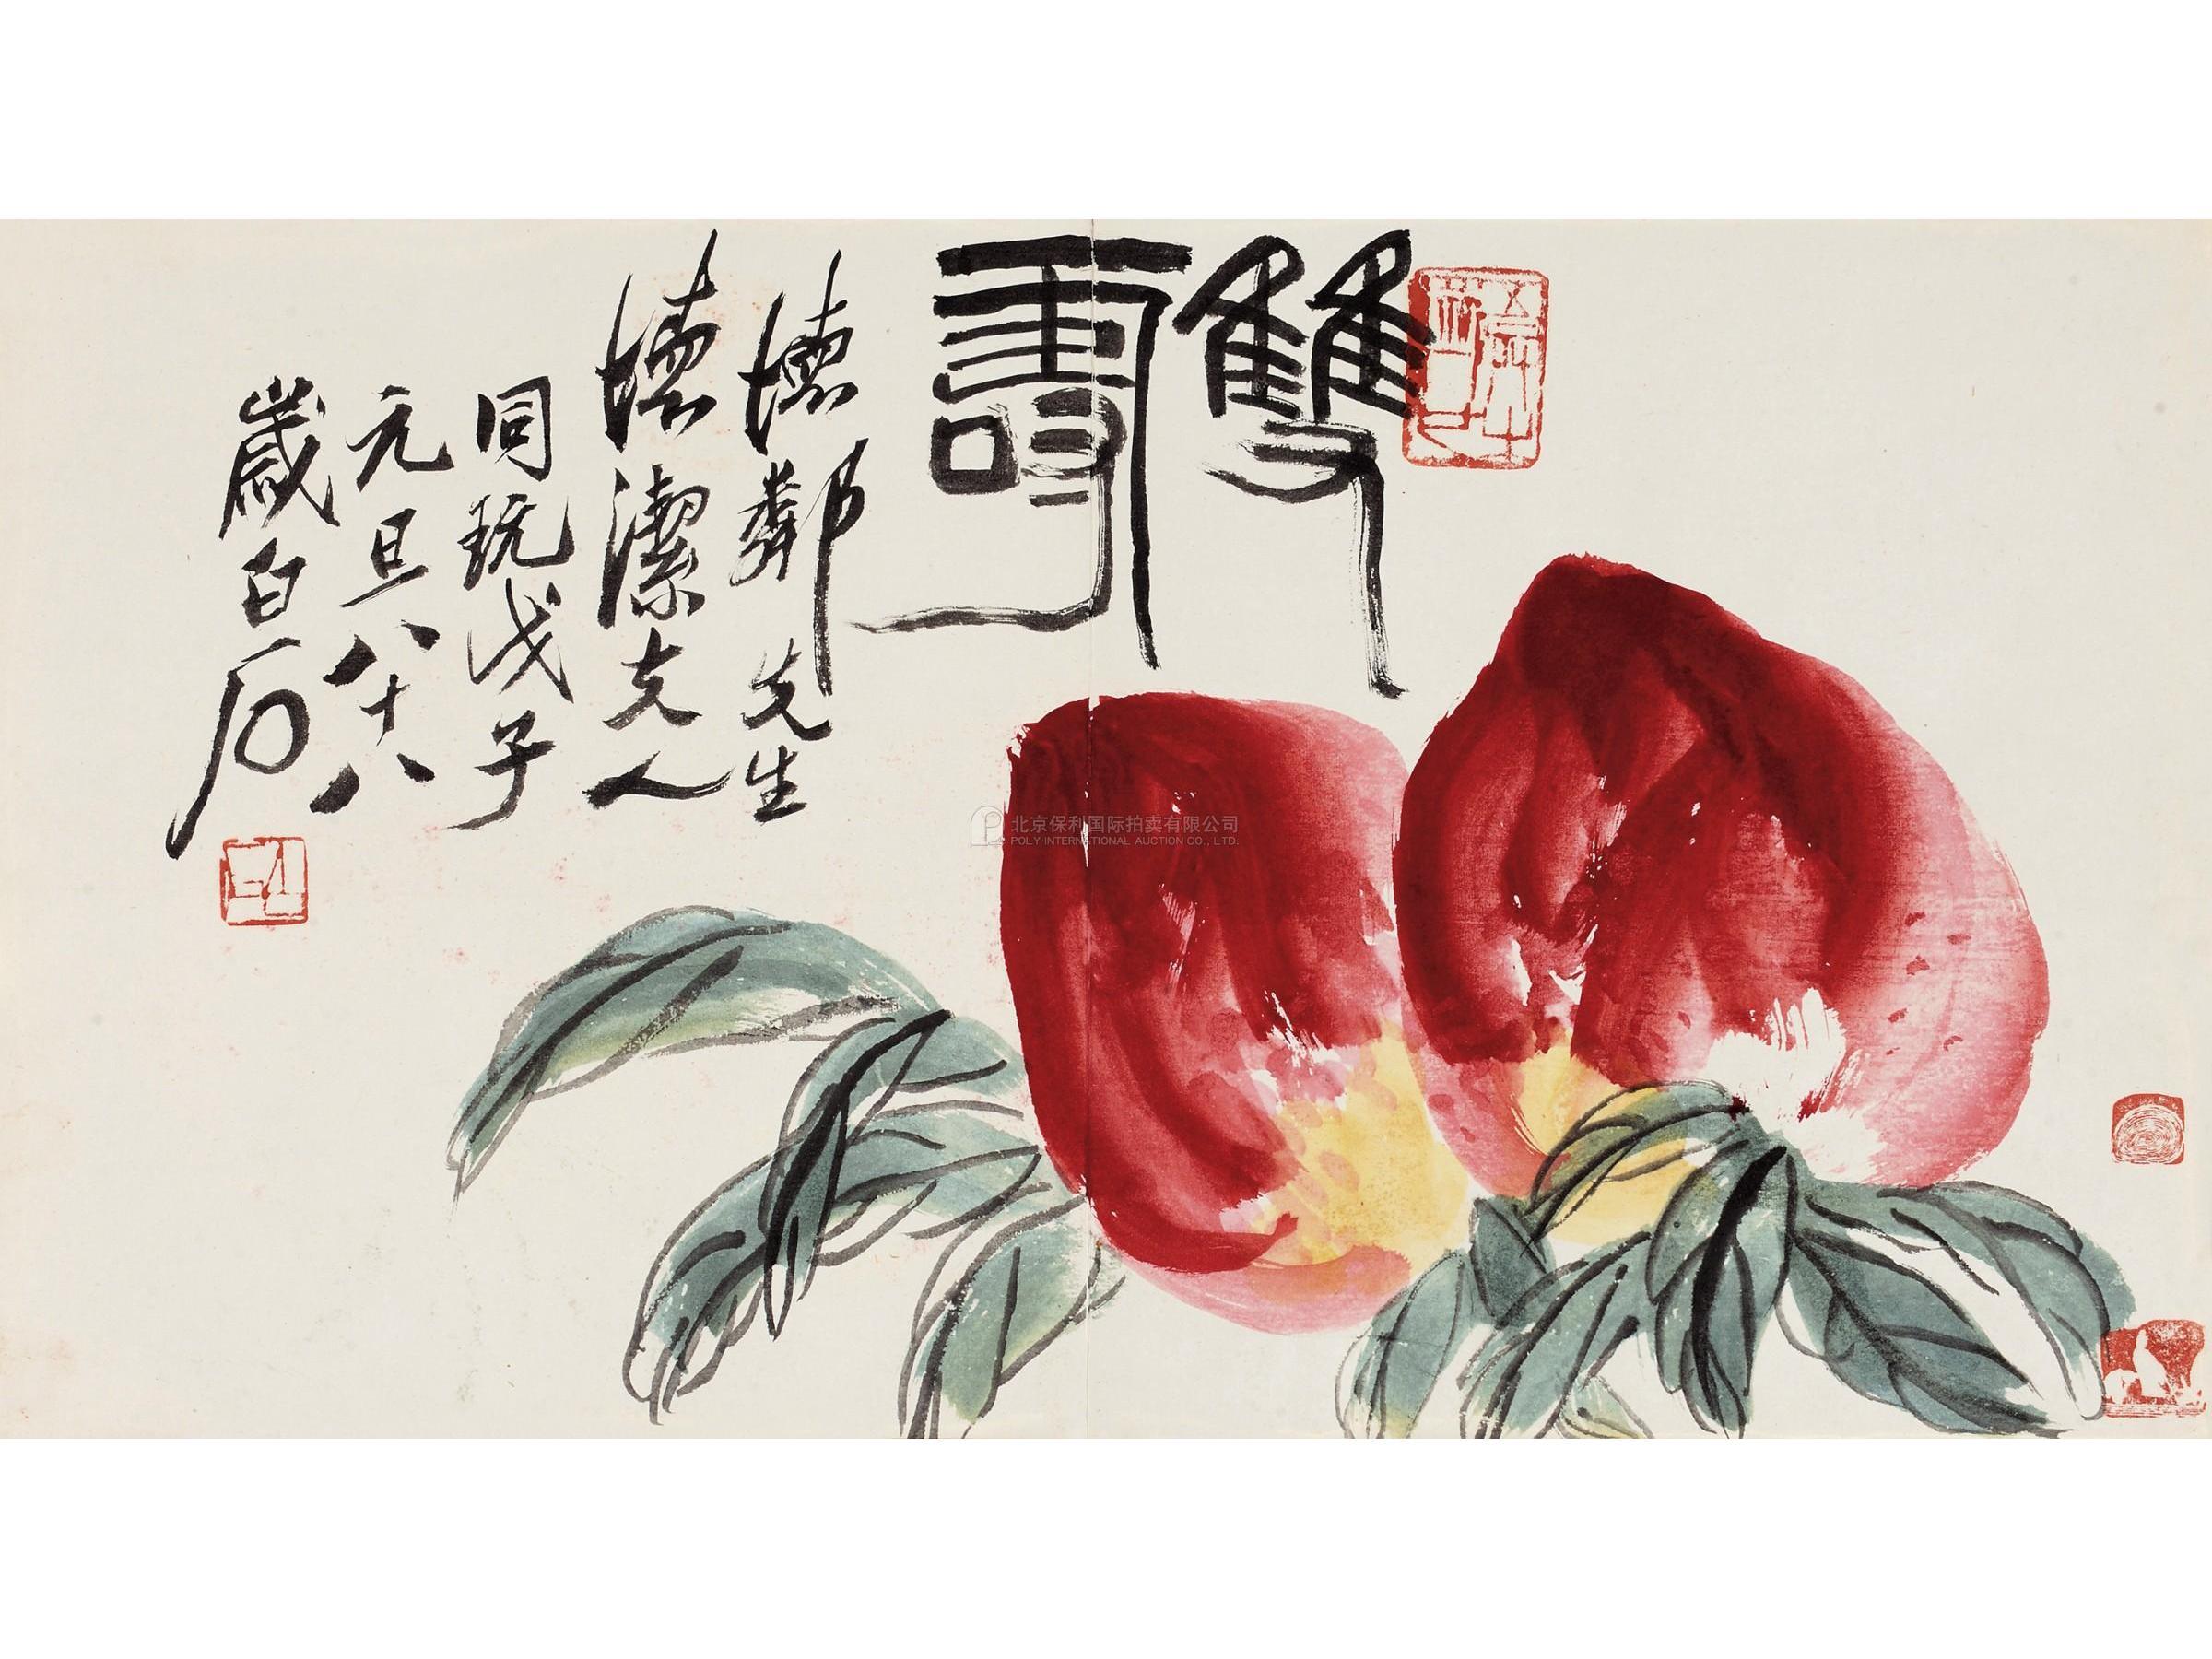 雙壽
德鄰先生
德潔夫人
同玩戊子
元旦八十八
歲白石
北京保利国际拍卖有限公司
POLY INTERNATIONAL AUCTION CO., LTD.